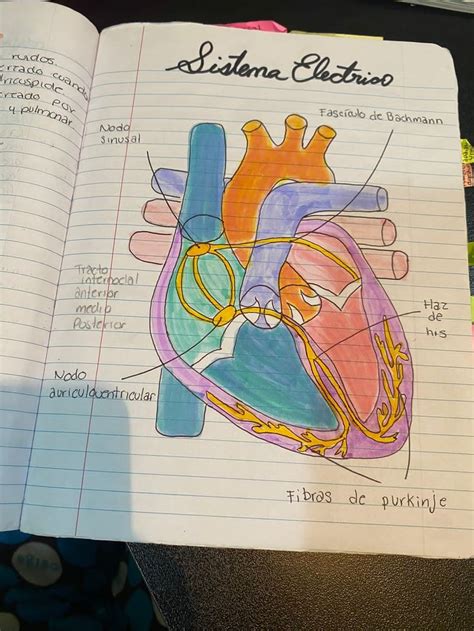 ruidos.
cuando
por
y pulmonar
Sistema Electrico
Fascículo de Bachmann
Nodo
sinusal
Tracto
internodal
anterior
medio
Posterior
Haz
de
his
Nodo
auriculoventricular
Fibras de purkinje